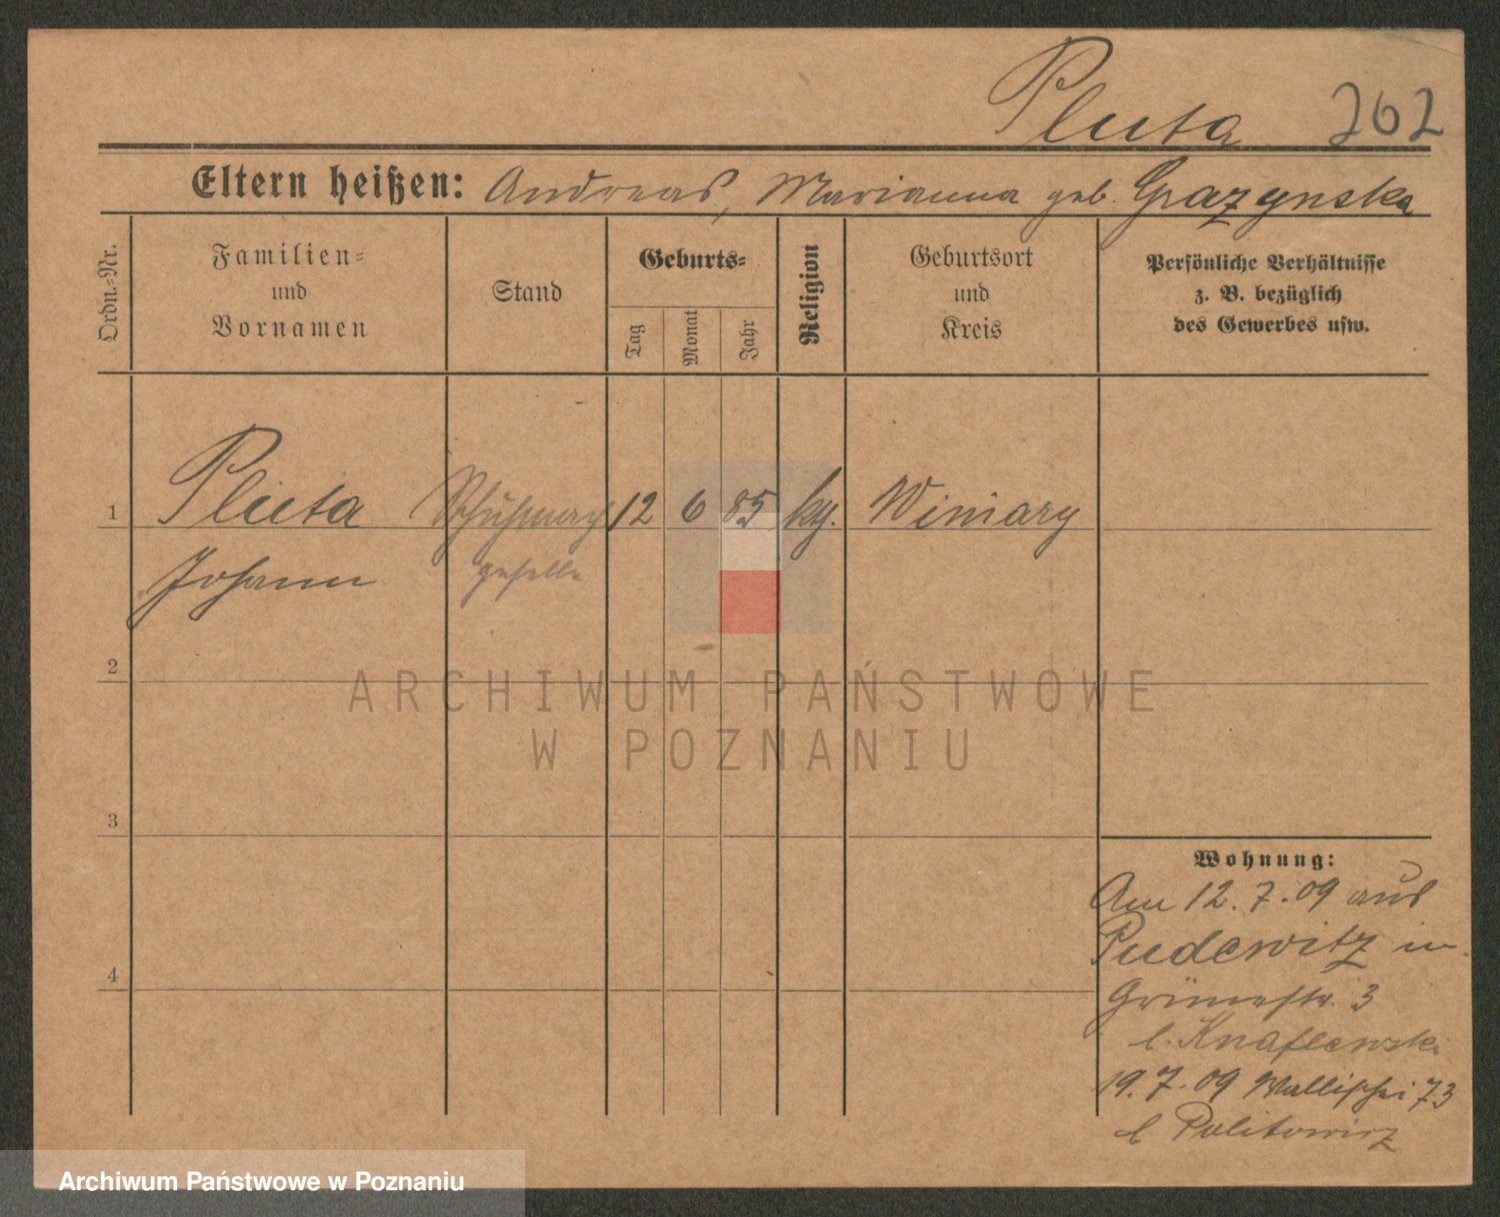 Pluta 262
Eltern heißen: Andreas, Marianna geb. Grazynska
Ordn.-Nr.
Familien-
und
Vornamen
Stand
Geburts-
Tag
Monat
Jahr
Religion
Geburtsort
und
Kreis
Persönliche Verhältnisse
z. B. bezüglich
des Gewerbes usw.
1 Pluta Schuhmach 12 6 85 Winiary
Johann geselle
2
3
4
Wohnung:
Am 12.7.09 aus
Pudewitz in
3
b. Knaflewski
19.7.09 Wallischei 73
b Politowicz
ARCHIWUM PAŃSTWOWE
W POZNANIU
Archiwum Państwowe w Poznaniu